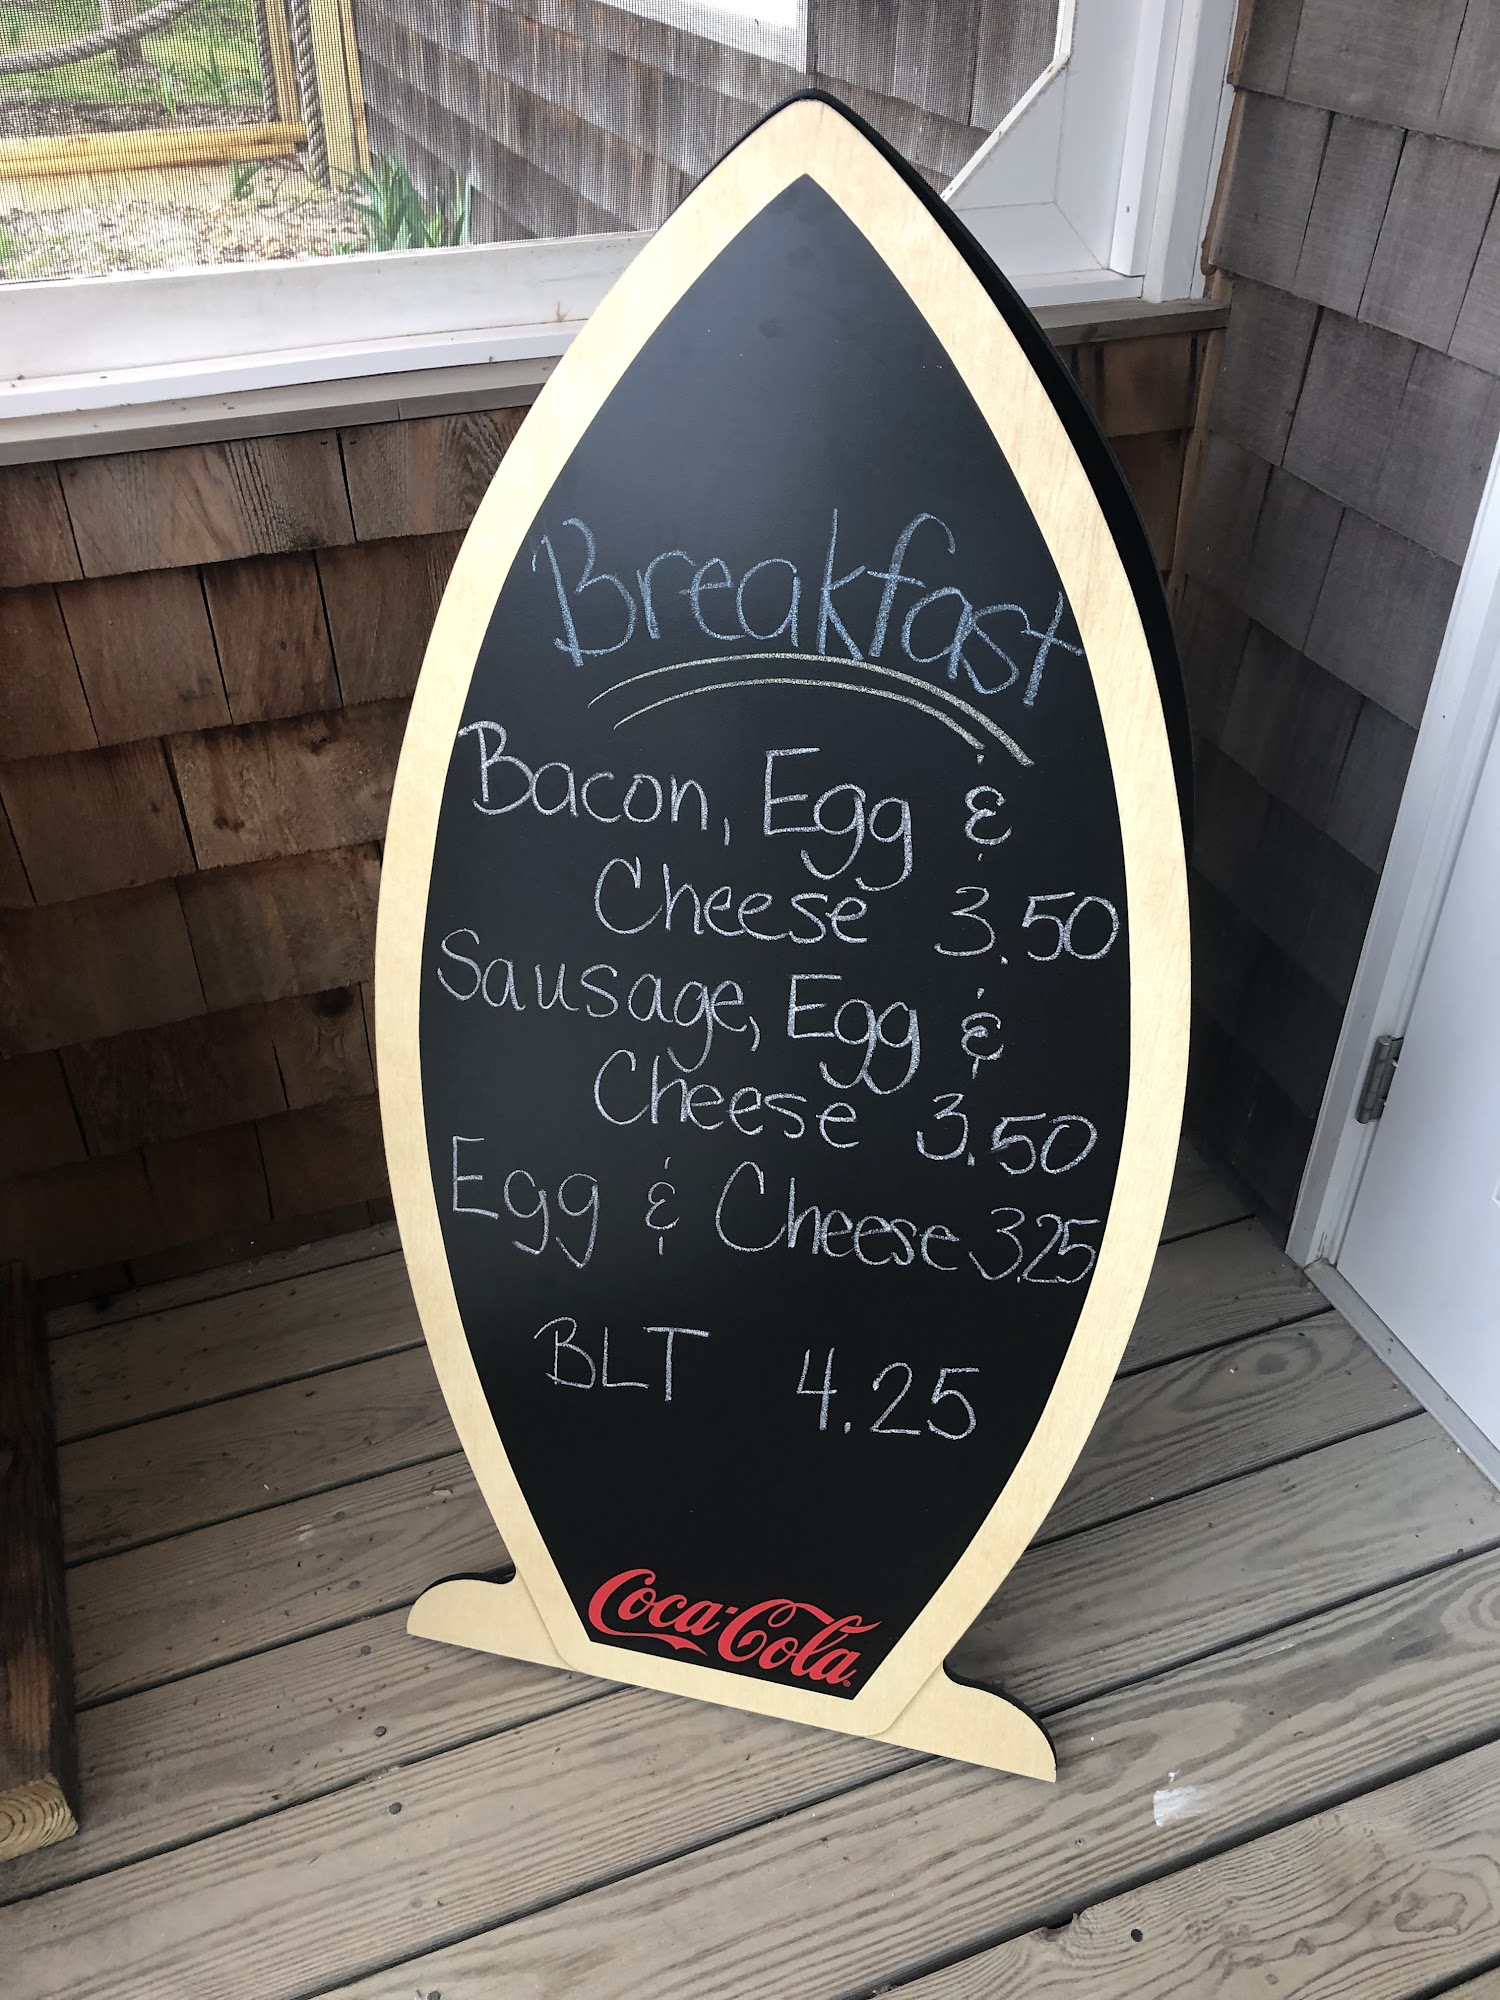 Breakfast
Bacon, Egg &
Cheese 3.50
Sausage, Egg &
Cheese 3.50
Egg & Cheese 3.25
BLT 4.25
Coca-Cola®